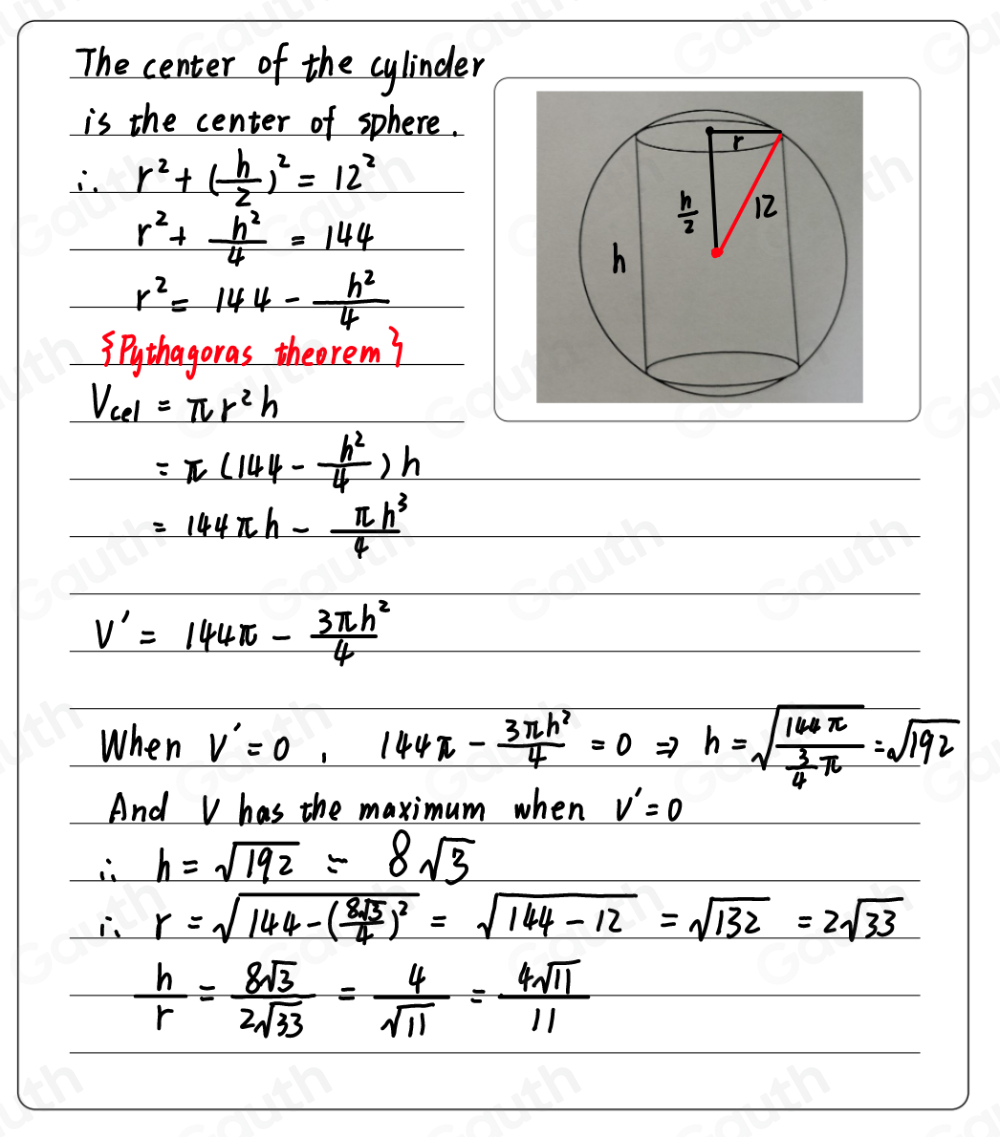 The center of the cylinder
is the center of sphere.
∴ r² + (h/2)² = 12²
r² + h²/4 = 144
r² = 144 - h²/4
{Pythagoras theorem}
Vcel = πr²h
= π(144 - h²/4)h
= 144πh - πh³/4
V' = 144π - 3πh²/4
When V' = 0, 144π - 3πh²/4 = 0 ⇒ h = √(144π / (3/4 π)) = √192
And V has the maximum when V' = 0
∴ h = √192 = 8√3
∴ r = √(144 - (8√3/4)²) = √(144 - 12) = √132 = 2√33
h/r = 8√3/2√33 = 4/√11 = 4√11/11
r
h/2
12
h
Gauth